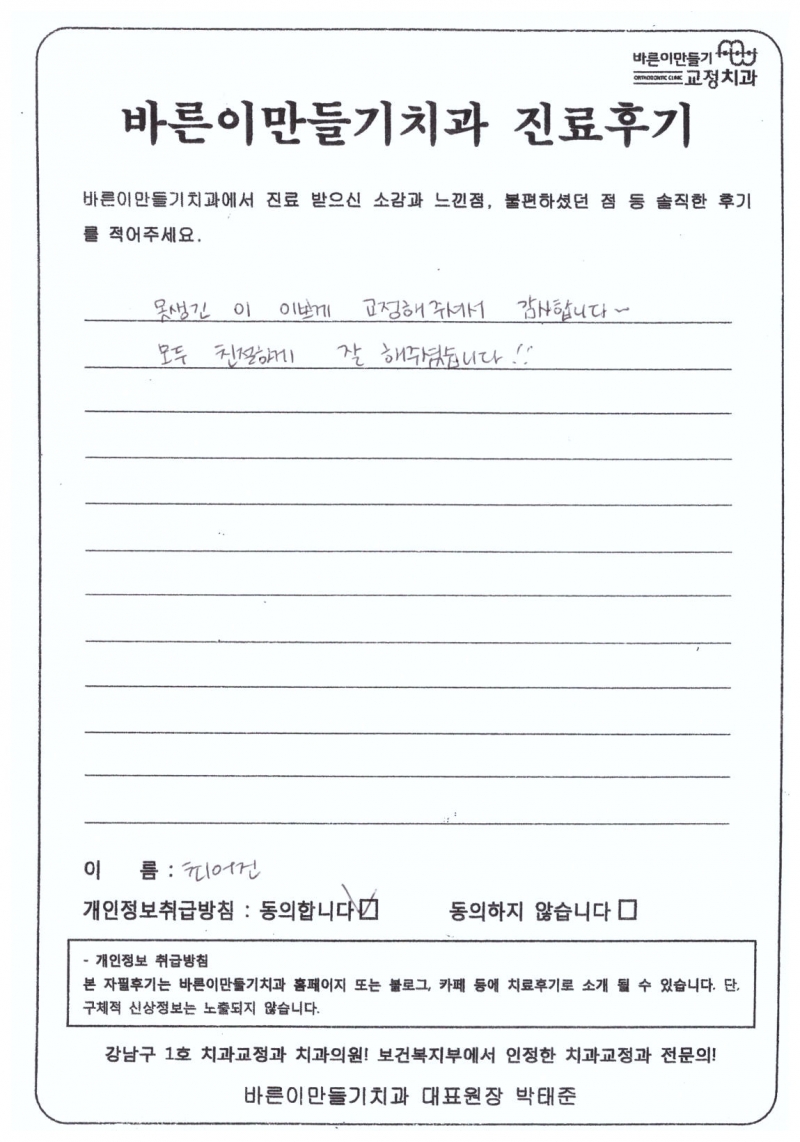 바른이만들기
ORTHODONTIC CLINIC 교정치과
바른이만들기치과 진료후기
바른이만들기치과에서 진료 받으신 소감과 느낀점, 불편하셨던 점 등 솔직한 후기
를 적어주세요.
못생긴 이 이쁘게 교정해주셔서 감사합니다~
모두 친절하게 잘 해주셨습니다!!
이 름 :
개인정보취급방침 : 동의합니다 동의하지 않습니다
- 개인정보 취급방침
본 자필후기는 바른이만들기치과 홈페이지 또는 블로그, 카페 등에 치료후기로 소개 될 수 있습니다. 단,
구체적 신상정보는 노출되지 않습니다.
강남구 1호 치과교정과 치과의원! 보건복지부에서 인정한 치과교정과 전문의!
바른이만들기치과 대표원장 박태준